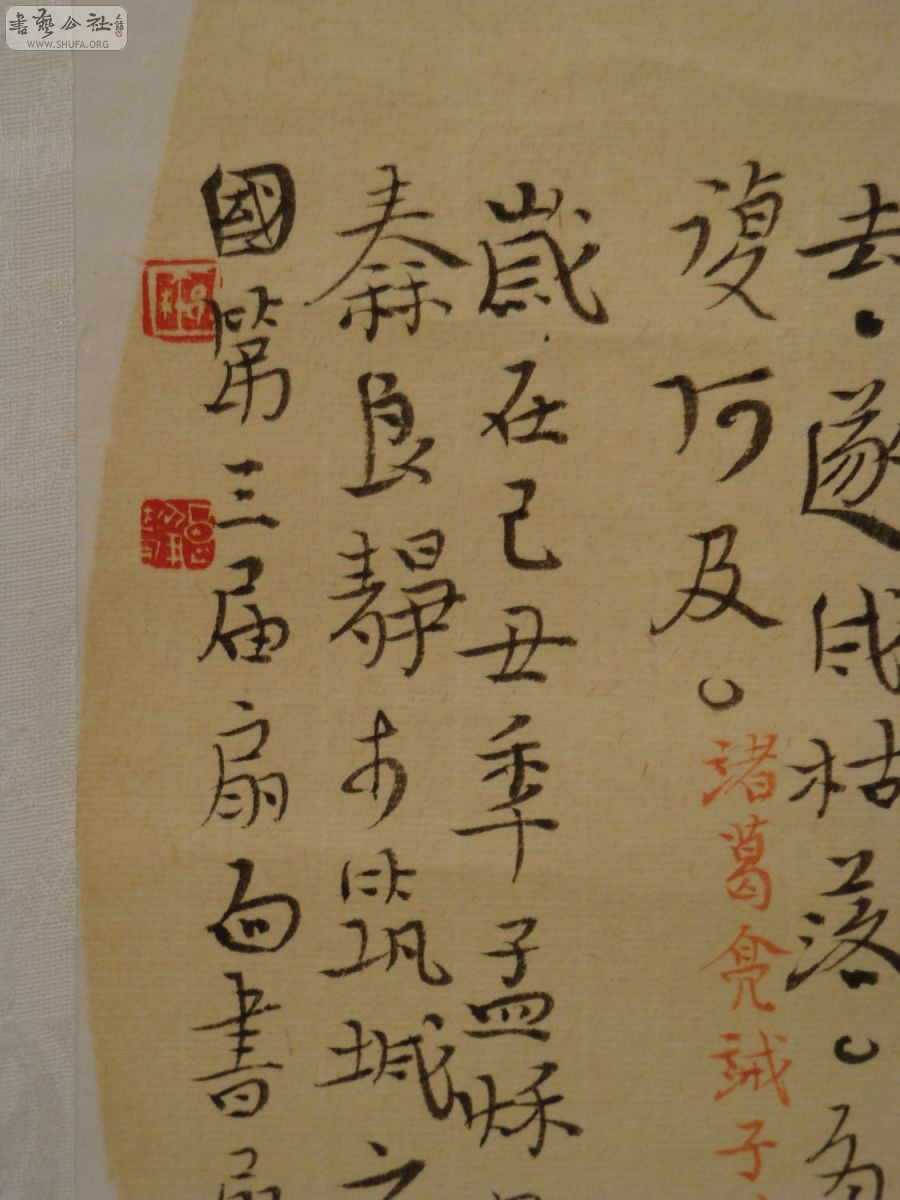 書藝公社
WWW.SHUFA.ORG
去遂成枯落
復何及
諸葛亮誡子
歲在己丑季孟秌
秦良靜于筑城之
國第三届扇面書